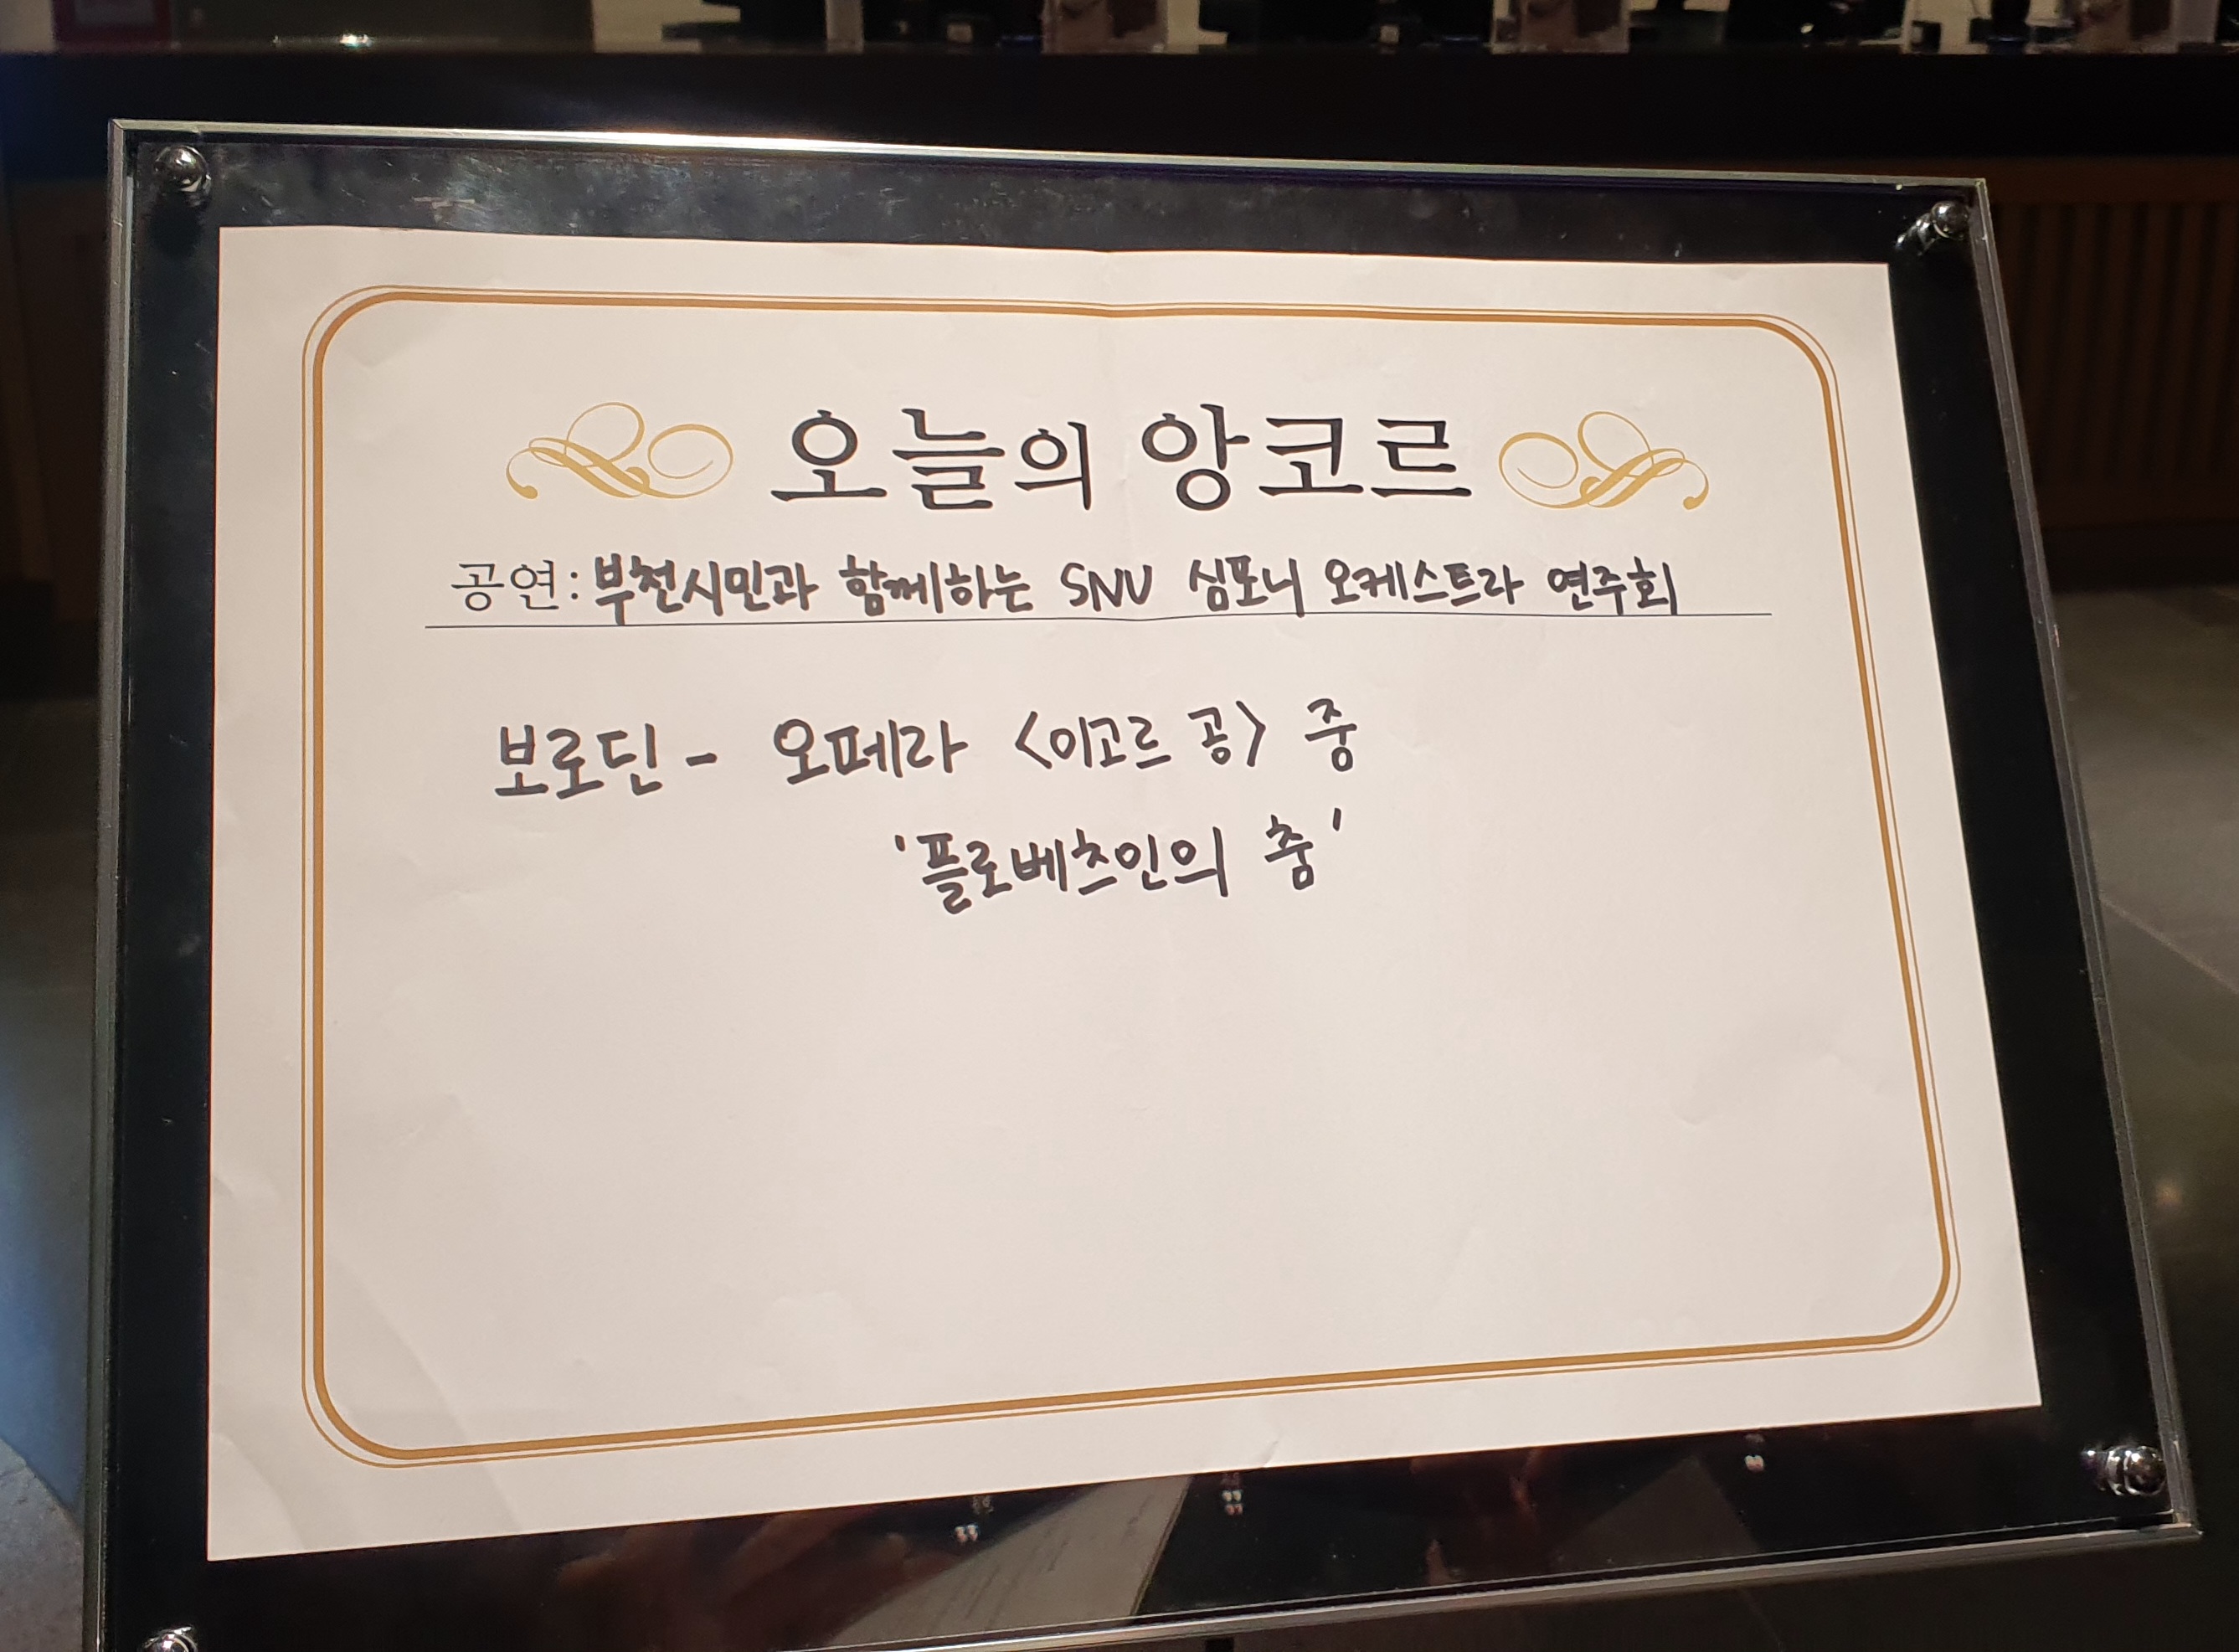 오늘의 앙코르
공연: 부천시민과 함께하는 SNU 심포니 오케스트라 연주회
보로딘 - 오페라 <이고르 공> 중
'플로베츠인의 춤'